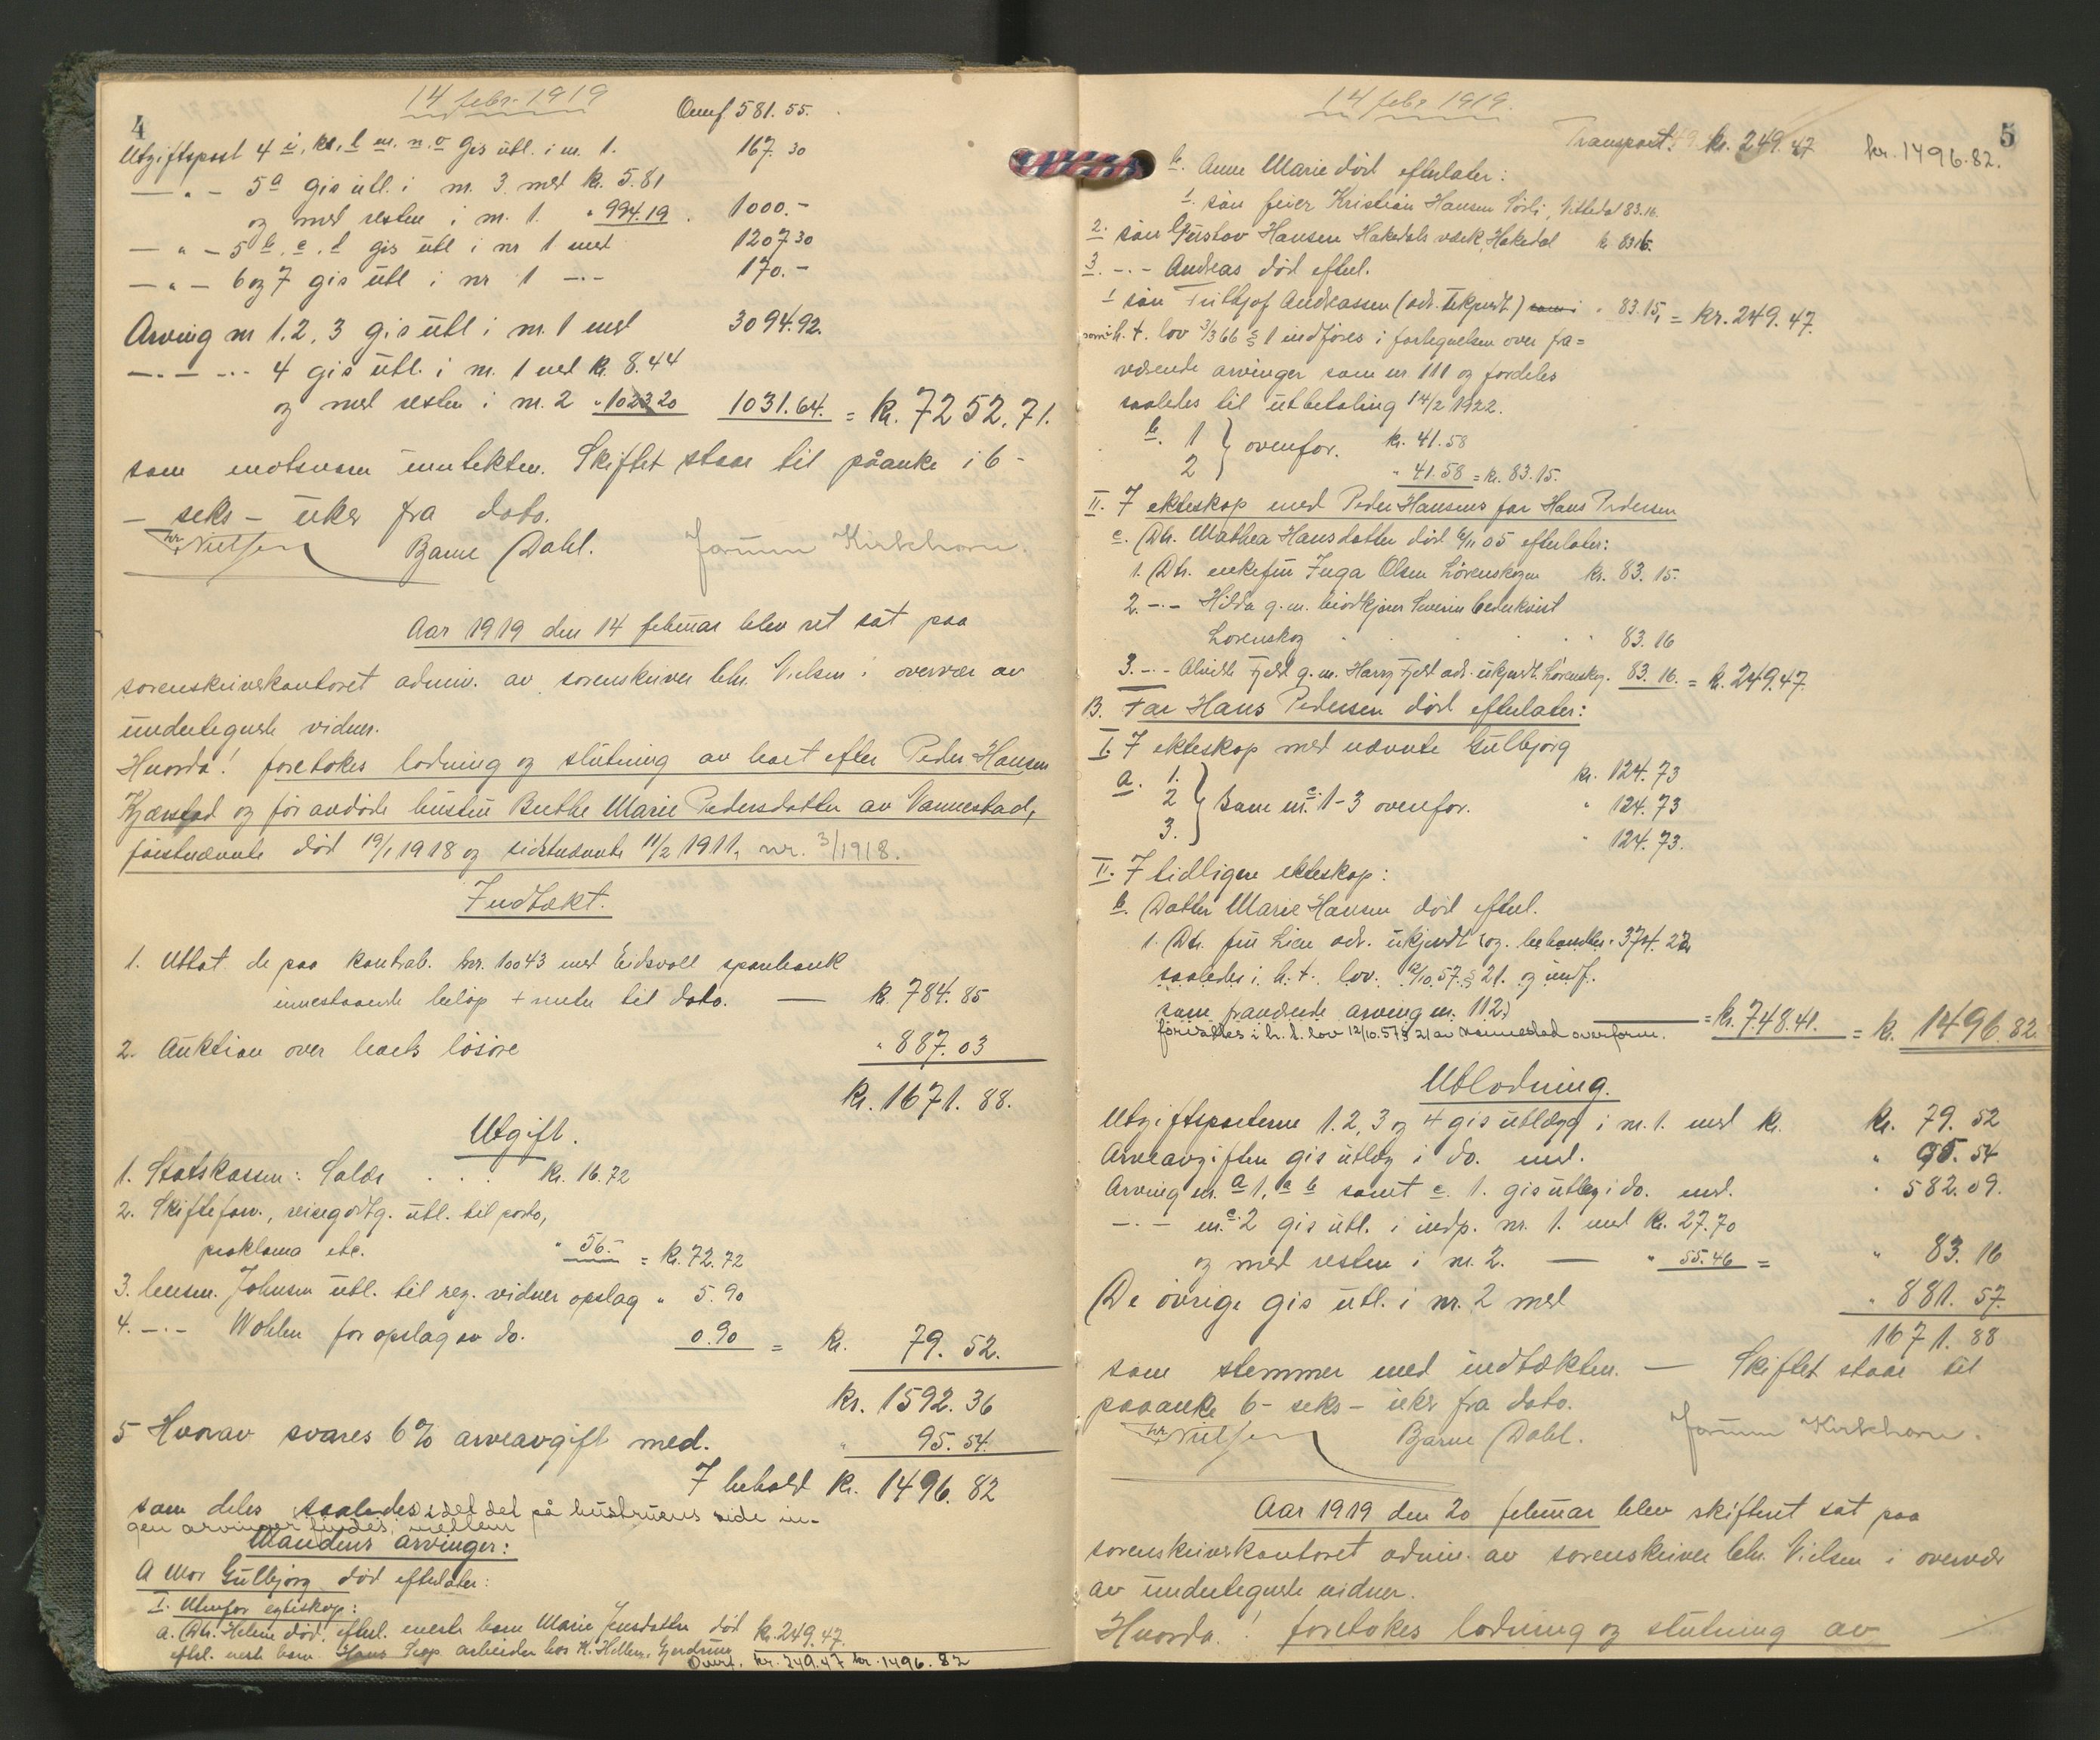 14 febr. 1919
4
Overf 581.55.
Utgiftspost 4 i, k, l m. n. o gis utl. i nr. 1. 167.30
— " — 5a gis utl. i nr. 3 med kr. 5.81
og med resten i nr. 1. " 994.19. 1000.-
— " — 5 b. c. d gis utl i nr 1 med 1207.30
— " — 6 og 7 gis utl i nr 1 -"- 170.-
Arving nr 1, 2, 3 gis utl i nr. 1 med 3094.92.
-"- -"- 4 gis utl. i nr. 1 med kr. 8.44
og med resten i nr. 2 " 1023.20 1031.64. = kr. 7252.71.
som motsvarer inntekten. Skiftet staar til påanke i 6 -
- seks - uker fra dato.
Chr. Nielsen Bjarne Dahl. Jorunn Kirkhorn.
Aar 1919 den 14 februar blev ret sat paa
sorenskriverkontoret admin. av sorenskriver Chr. Nielsen i overvær av
undertegnede vidner.
Hvorda! foretokes lodning og slutning av boet efter Peder Hansen
Kjærstad og før avdøde hustru Berthe Marie Pedersdatter av Nannestad,
førstnævnte død 19/1 1918 og sidstnævnte 11/2 1911, nr. 3/1918.
Indtækt.
1. Uttat de paa kontrab. nr. 10043 med Eidsvoll sparebank
innestaaende beløp + renter til dato. — kr. 784.85
2. Auktion over boets løsøre " 887.03
kr. 1671.88.
Utgift.
1. Statskassen: Salær . . . kr. 16.72
2. Skifteforv., reisegodtg. utl. til porto,
proklama etc. " 56.- = kr. 72.72
3. lensm. Johnsen utl. til reg. vidner opslag " 5.90
4. -"- Wohlen for opslag av do. 0.90 = kr. 79.52.
kr. 1592.36
5 Hvorav svares 6% arveavgift med. " 95.54.
I behold kr. 1496.82
som deles saaledes, idet det på hustruens side in-
gen arvinger findes, mellem
Mandens arvinger:
A Mor Gulbjørg død efterlater:
I. Utenfor egteskap:
a. Dtr. Helene død, efterl. eneste barn Marie Jensdatter død kr. 249.47.
efterl. eneste barn Hans arbeider hos K. Hellen, Gjerdrum
Overf. kr. 249.47 kr. 1496.82
14 febr 1919.
5
Transport: kr. 249.47 kr. 1496.82.
b. Anne Marie død efterlater:
1. søn feier Kristian Hansen Sørli, Nittedal 83.16.
2. søn Gustav Hansen Hakedals værk, Hakedal kr 83.16.
3. -"- Andreas død efterl.
1 søn Frithjof Andreassen (adr. ukjendt) " 83.15, = kr. 249.47.
som i h. t. lov 3/3 66 § 1 indføres i fortegnelsen over fra=
værende arvinger som nr. 111 og fordeles
saaledes til utbetaling 14/2 1922.
b. 1 } ovenfor. kr. 41.58
2 " 41.58 = kr. 83.15.
II. I ekteskap med Peder Hansens far Hans Pedersen
c. Dtr. Mathea Hansdatter død 6/11 05 efterlater:
1. Dtr. enkefru Inga Olsen Lørenskogen kr. 83.15.
2. -"- Hilda g.m. Severin Cederkvist
Lørenskog " 83.16
3. -"- Alvilde Fjeld g.m. Harry Fjeld adr. ukjendt. Lørenskog. 83.16. = kr. 249.47.
B. Far Hans Pedersen død efterlater:
I. I ekteskap med nævnte Gulbjørg
a. 1. kr. 124.73
2 } Same nr. c. 1-3 ovenfor. " 124.73
3. " 124.73.
II. I tidligere ekteskap:
b. Datter Marie Hansen død efterl.
1. Dtr. fru Lien adr. ukjendt og behandles " 374.22
saaledes i h. t. lov. 12/10.57. § 21. og indf.
som fraværende arving nr. 112.
forvaltes i h. t. lov 12/10.57 § 21 av Nannestad overform. = kr. 748.41. = kr. 1496.82.
Utlodning.
Utgiftsposterne 1. 2, 3 og 4 gis utlægg i nr. 1. med kr. kr. 79.52
Arveavgiften gis utlæg i do. med. " 95.54
Arving nr. a 1, a b samt c. 1. gis utlæg i do. med. " 582.09.
-"- nr. c. 2 gis utl. i indp. nr. 1. med kr. 27.70
og med resten i nr. 2. — " 55.46 = " 83.16
De øvrige gis utl. i nr. 2 med " 881.57.
1671.88
som stemmer med indtækten. — Skiftet staar til
paaanke 6 - seks - uker fra dato.
Chr. Nielsen Bjarne Dahl. Jorunn Kirkhorn.
Aar 1919 den 20 februar blev skifteret sat paa
sorenskriverkontoret admin. av sorenskriver Chr. Nielsen i overvær
av undertegnede vidner.
Hvorda! foretokes lodning og slutning av